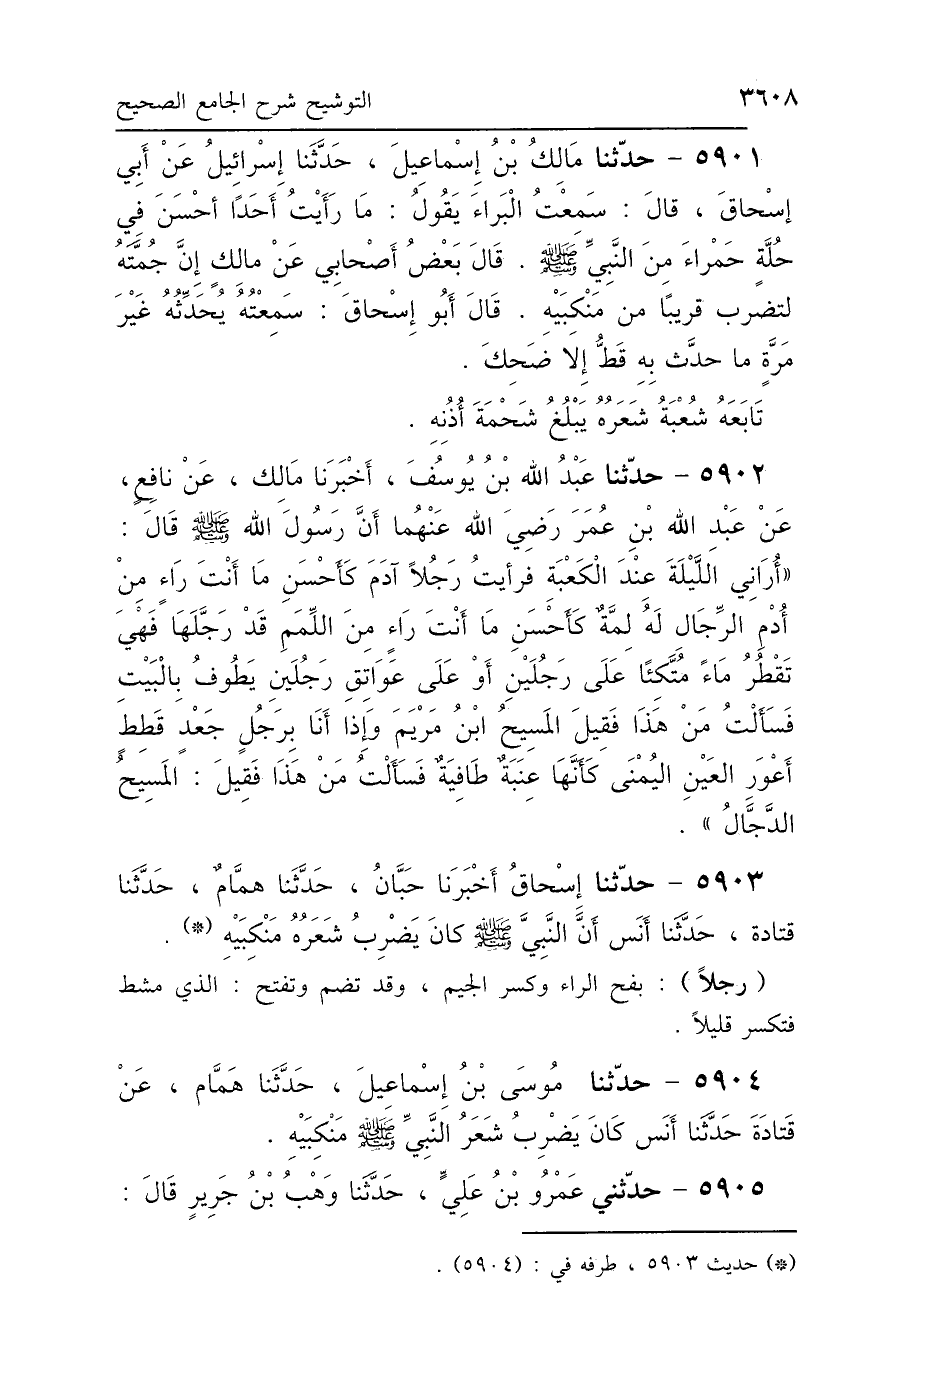 ٣٦٠٨ التوشيح شرح الجامع الصحيح
٥٩٠١ - حدّثنا مَالكُ بْنُ إسْماعيلَ ، حَدَّثَنا إسْرائيلُ عَنْ أبي
إسْحاقَ ، قالَ : سَمعْتُ البَراءَ يَقُولُ : مَا رَأَيْتُ أَحَدًا أحْسَنَ فِي
حُلَّةٍ حَمْراءَ مِنَ النَّبيِّ ﷺ . قَالَ بَعْضُ أَصْحابي عَنْ مالكٍ إنَّ جُمَّتَهُ
لتضرب قريبًا من مَنْكِبَيْهِ . قَالَ أَبُو إسْحاقَ : سَمعْتُهُ يُحَدِّثُهُ غَيْرَ
مَرَّةٍ ما حدَّث بِهِ قَطُّ إلا ضَحِكَ .
تَابَعَهُ شُعْبَةُ شَعَرُهُ يَبْلُغُ شَحْمَةَ أُذُنِهِ .
٥٩٠٢ - حدّثنا عَبْدُ الله بْنُ يُوسُفَ ، أَخْبَرَنا مَالك ، عَنْ نافِعٍ ،
عَنْ عَبْدِ الله بْنِ عُمَرَ رَضِيَ الله عَنْهُما أَنَّ رَسُولَ الله ﷺ قَالَ :
«أُرَاني اللَّيْلَةَ عِنْدَ الْكَعْبَةِ فرأيتُ رَجُلاً آدَمَ كَأَحْسَنِ مَا أَنْتَ رَاءٍ مِنْ
أُدْمِ الرِّجَالِ لَهُ لِمَّةٌ كَأَحْسَنِ مَا أَنْتَ رَاءٍ مِنَ اللِّمَمِ قَدْ رَجَّلَهَا فَهْيَ
تَقْطُرُ مَاءً مُتَّكِئًا عَلَى رَجُلَيْنِ أَوْ عَلَى عَوَاتِقِ رَجُلَينِ يَطُوفُ بِالْبَيْتِ
فَسَأَلْتُ مَنْ هَذَا فَقِيلَ المَسِيحُ ابْنُ مَرْيَمَ وَإذا أنَا برَجُلٍ جَعْدٍ قَطَطٍ
أَعْوَرِ العَيْنِ اليُمْنَى كَأَنَّهَا عِنَبَةٌ طَافِيَةٌ فَسَأَلْتُ مَنْ هَذَا فَقِيلَ : المَسِيحُ
الدَّجَّالُ » .
٥٩٠٣ - حدّثنا إسْحاقُ أَخْبَرَنَا حَبَّانُ ، حَدَّثَنا همَّامٌ ، حَدَّثَنا
قتادة ، حَدَّثَنا أنَس أَنَّ النَّبيَّ ﷺ كانَ يَضْرِبُ شَعَرُهُ مَنْكِبَيْهِ (*) .
( رجلاً ) : بفح الراء وكسر الجيم ، وقد تضم وتفتح : الذي مشط
فتكسر قليلاً .
٥٩٠٤ - حدّثنا مُوسَى بْنُ إسْماعيلَ ، حَدَّثَنا هَمَّام ، عَنْ
قَتادَةَ حَدَّثَنا أنَس كَانَ يَضْرِبُ شَعَرُ النَّبيِّ ﷺ مَنْكِبَيْهِ .
٥٩٠٥ - حدّثني عَمْرُو بْنُ عَليٍّ ، حَدَّثَنا وَهْبُ بْنُ جَريرٍ قَالَ :
(*) حديث ٥٩٠٣ ، طرفه في : (٥٩٠٤) .